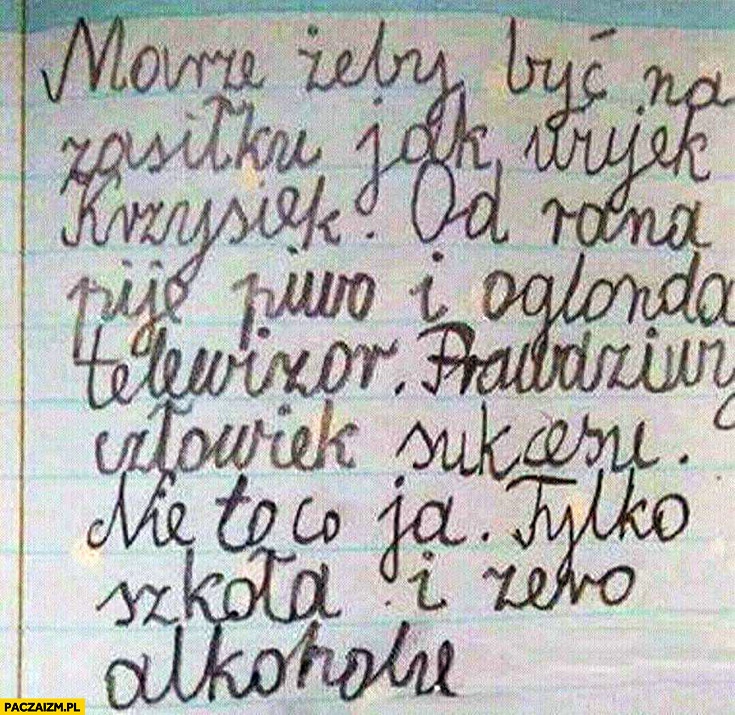 Marze żeby być na
zasiłku jak wujek
Krzysiek. Od rana
pije piwo i oglonda
telewizor. Prawdziwy
człowiek sukcesu.
Nie to co ja. Tylko
szkoła i zero
alkoholu
PACZAIZM.PL